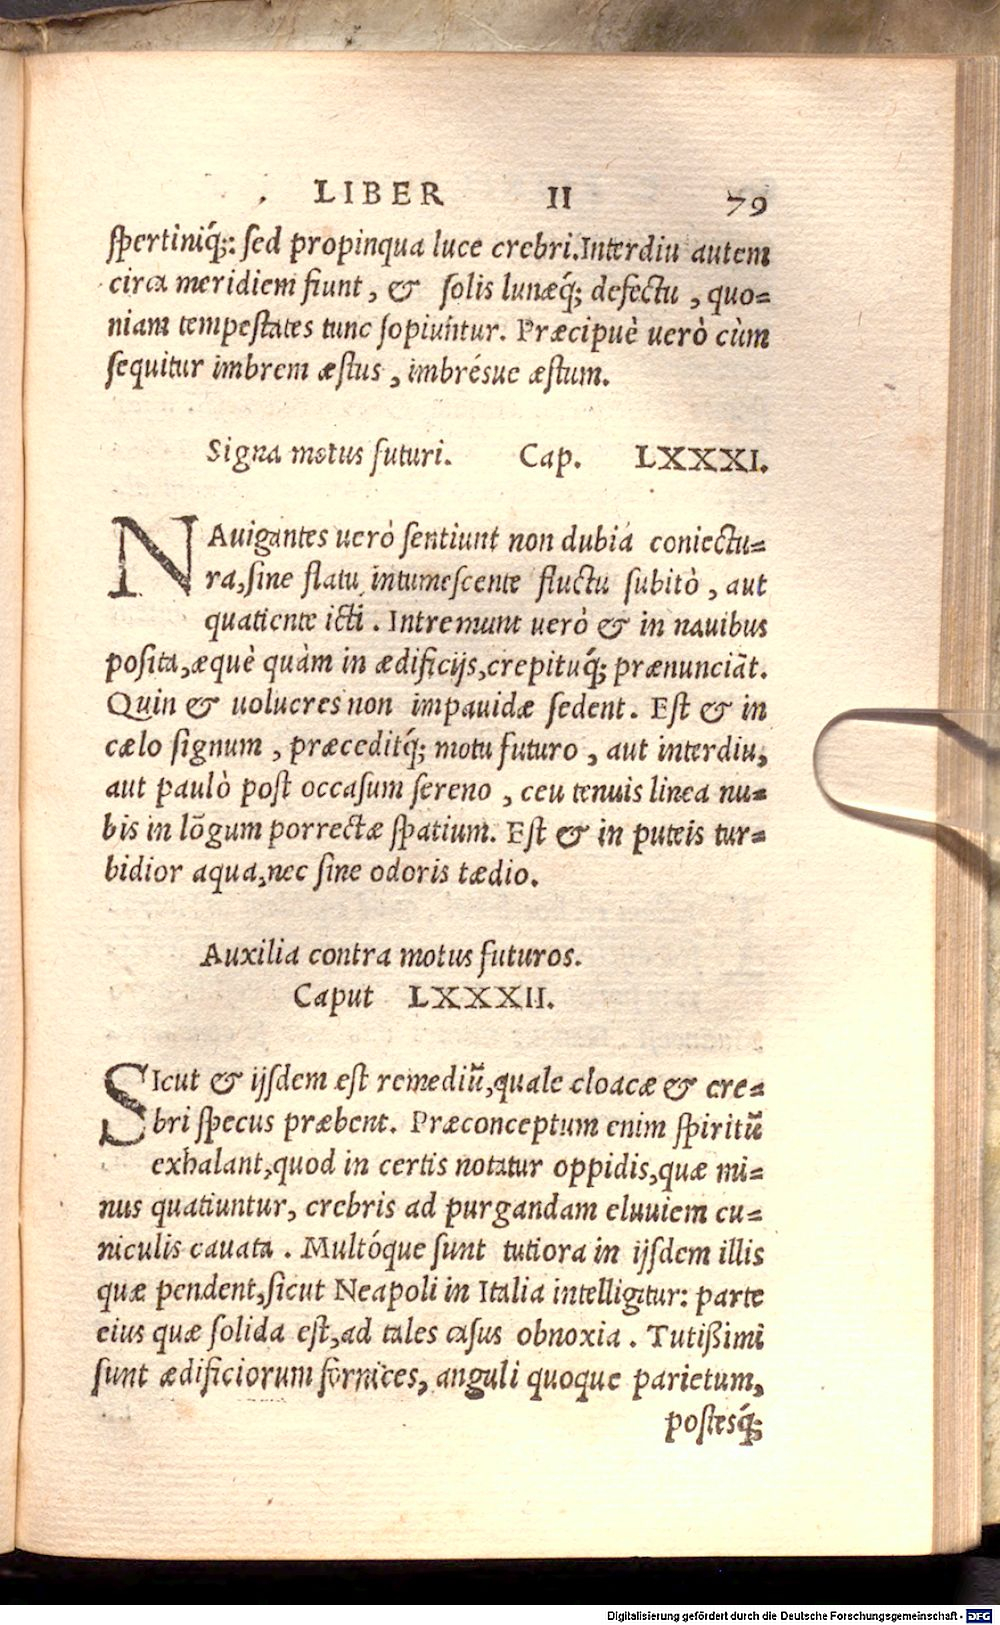 LIBER II 79
ſpertiniq́;: ſed propinqua luce crebri. Interdiu autem
circa meridiem fiunt, & ſolis lunæq́; defectu, quo=
niam tempeſtates tunc ſopiuntur. Præcipuè uerò cùm
ſequitur imbrem æſtus, imbréſue æſtum.
Signa motus futuri. Cap. LXXXI.
NAuigantes uerò ſentiunt non dubia coniectu=
ra, ſine flatu intumeſcente fluctu ſubitò, aut
quatiente icti. Intremunt uerò & in nauibus
poſita, æquè quàm in ædificijs, crepituq́; prænunciãt.
Quin & uolucres non impauidæ ſedent. Eſt & in
cælo ſignum, præceditq́; motu futuro, aut interdiu,
aut paulò poſt occaſum ſereno, ceu tenuis linea nu=
bis in lõgum porrectæ ſpatium. Eſt & in puteis tur=
bidior aqua, nec ſine odoris tædio.
Auxilia contra motus futuros.
Caput LXXXII.
SIcut & ijſdem eſt remediũ, quale cloacæ & cre=
bri ſpecus præbent. Præconceptum enim ſpiritũ
exhalant, quod in certis notatur oppidis, quæ mi=
nus quatiuntur, crebris ad purgandam eluuiem cu=
niculis cauata. Multóque ſunt tutiora in ijſdem illis
quæ pendent, ſicut Neapoli in Italia intelligitur: parte
eius quæ ſolida eſt, ad tales caſus obnoxia. Tutißimi
ſunt ædificiorum fornices, anguli quoque parietum,
poſtesq́;
Digitalisierung gefördert durch die Deutsche Forschungsgemeinschaft - DFG